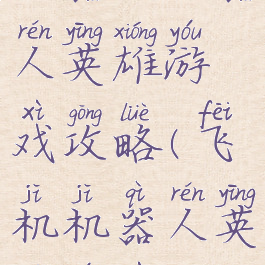 rén yīng xióng yóu
人英雄游
xì gōng lüè fēi
戏攻略(飞
jī jī qì rén yīng
机机器人英